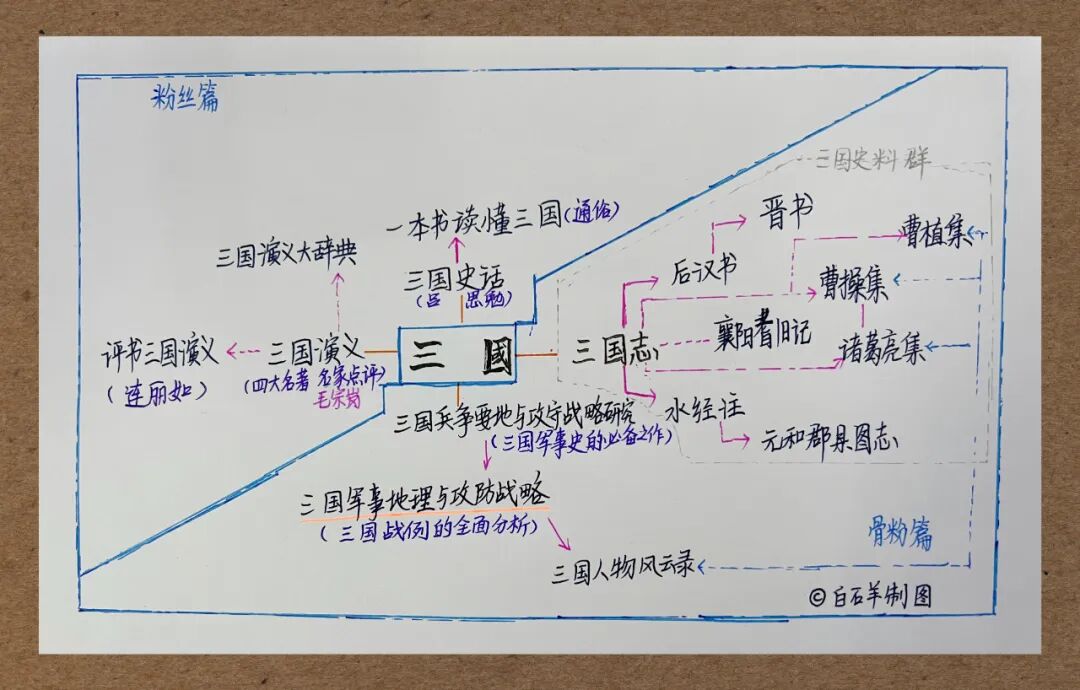 粉丝篇
三国史料群
一本书读懂三国(通俗)
晋书
曹植集
三国演义大辞典
三国史话
(吕思勉)
后汉书
曹操集
三國
评书三国演义
(连丽如)
三国演义
(四大名著 名家点评)
毛宗岗
三国志
襄阳耆旧记
诸葛亮集
三国兵争要地与攻守战略研究
(三国军事史的必备之作)
水经注
元和郡县图志
三国军事地理与攻防战略
(三国战例的全面分析)
骨粉篇
三国人物风云录
©白石羊制图